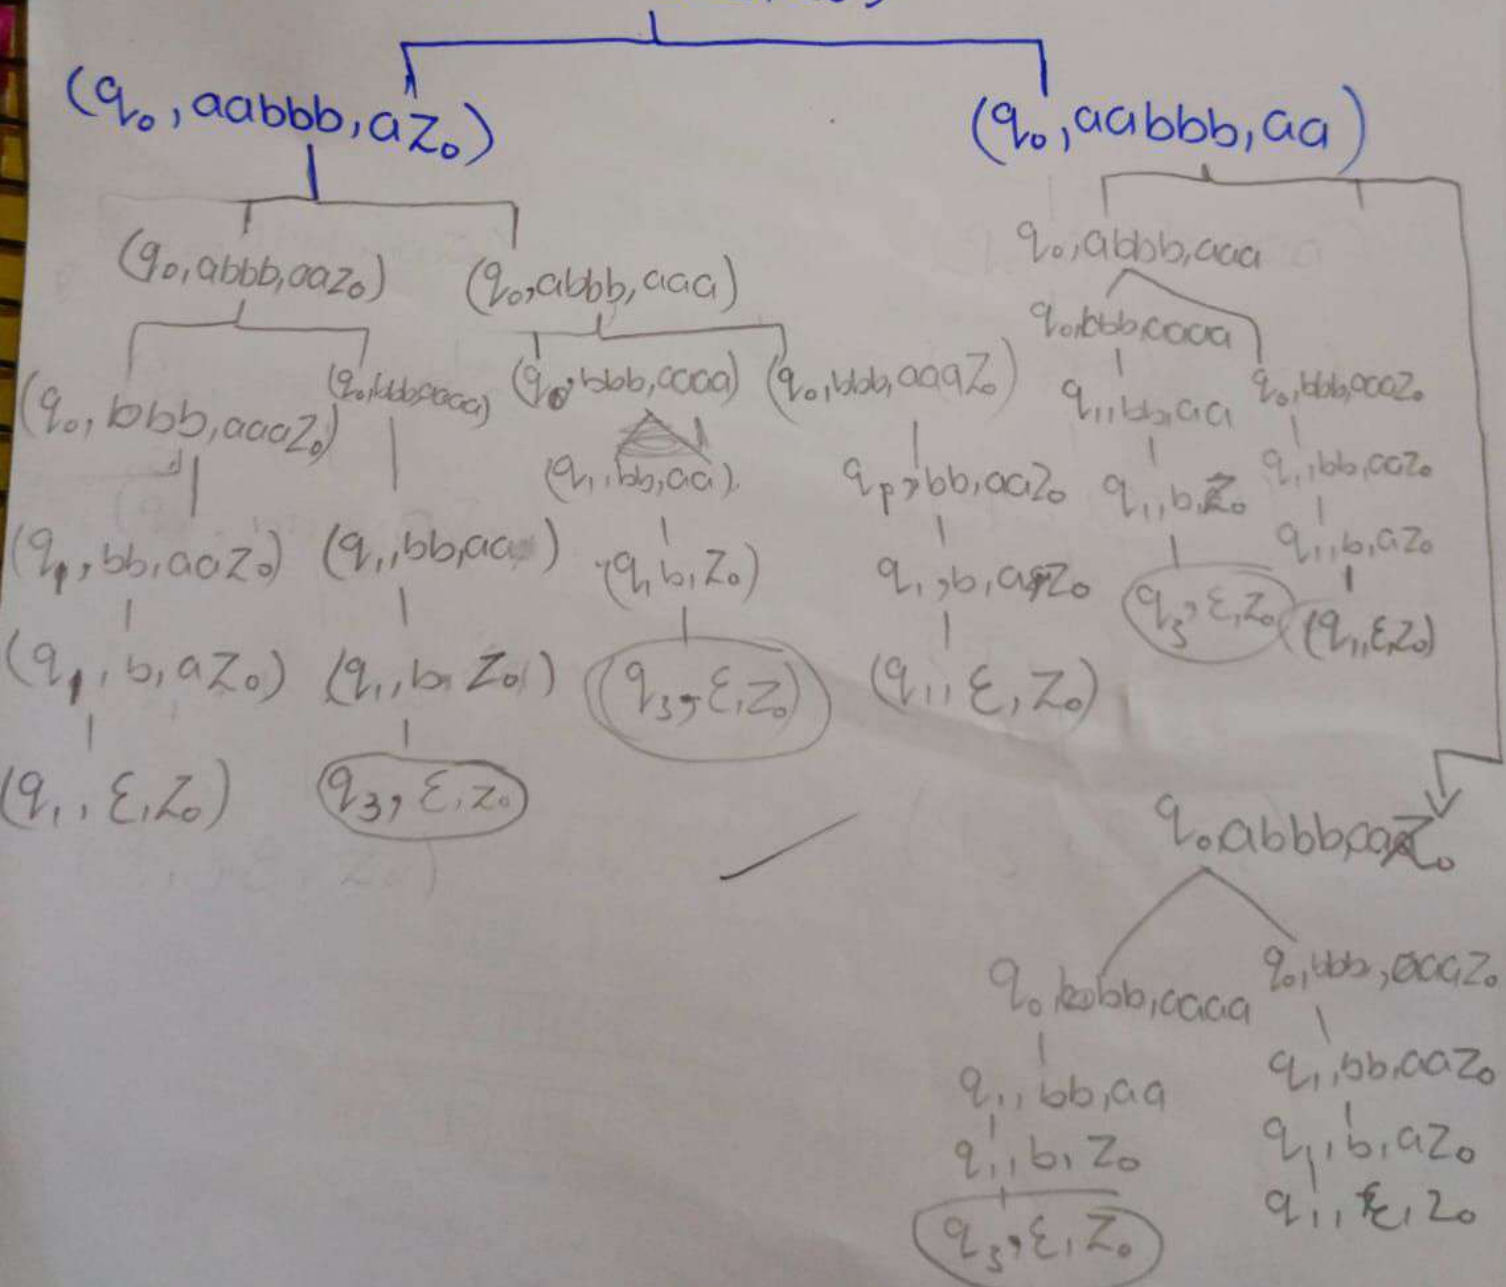 (q₀, aabbb, aZ₀) (q₀, aabbb, aa)
(q₀, abbb, aaZ₀) (q₀, abbb, aaa) q₀, abbb, aaa
q₀, bbb, aaaa
(q₀, bbb, aaaZ₀) (q₀, bbb, aaaa) (q₀, bbb, aaaa) (q₀, bbb, aaaZ₀) q₁, bb, aa q₀, bbb, aaaZ₀
(q₁, bb, aa) q₁, bb, aaZ₀ q₁, b, Z₀ q₁, bb, aaZ₀
(q₁, bb, aaZ₀) (q₁, bb, aa) (q₁ b, Z₀) q₁, b, aZ₀ q₃, ε, Z₀ q₁, b, aZ₀
(q₁, b, aZ₀) (q₁, b, Z₀) (q₃, ε, Z₀) (q₁, ε, Z₀) (q₁, ε, Z₀)
(q₁, ε, Z₀) q₃, ε, Z₀
q₀, abbb, aaZ₀
q₀ bbb, aaaa q₀, bbb, aaaZ₀
q₁, bb, aa q₁, bb, aaZ₀
q₁, b, Z₀ q₁, b, aZ₀
q₃, ε, Z₀ q₁, ε, Z₀